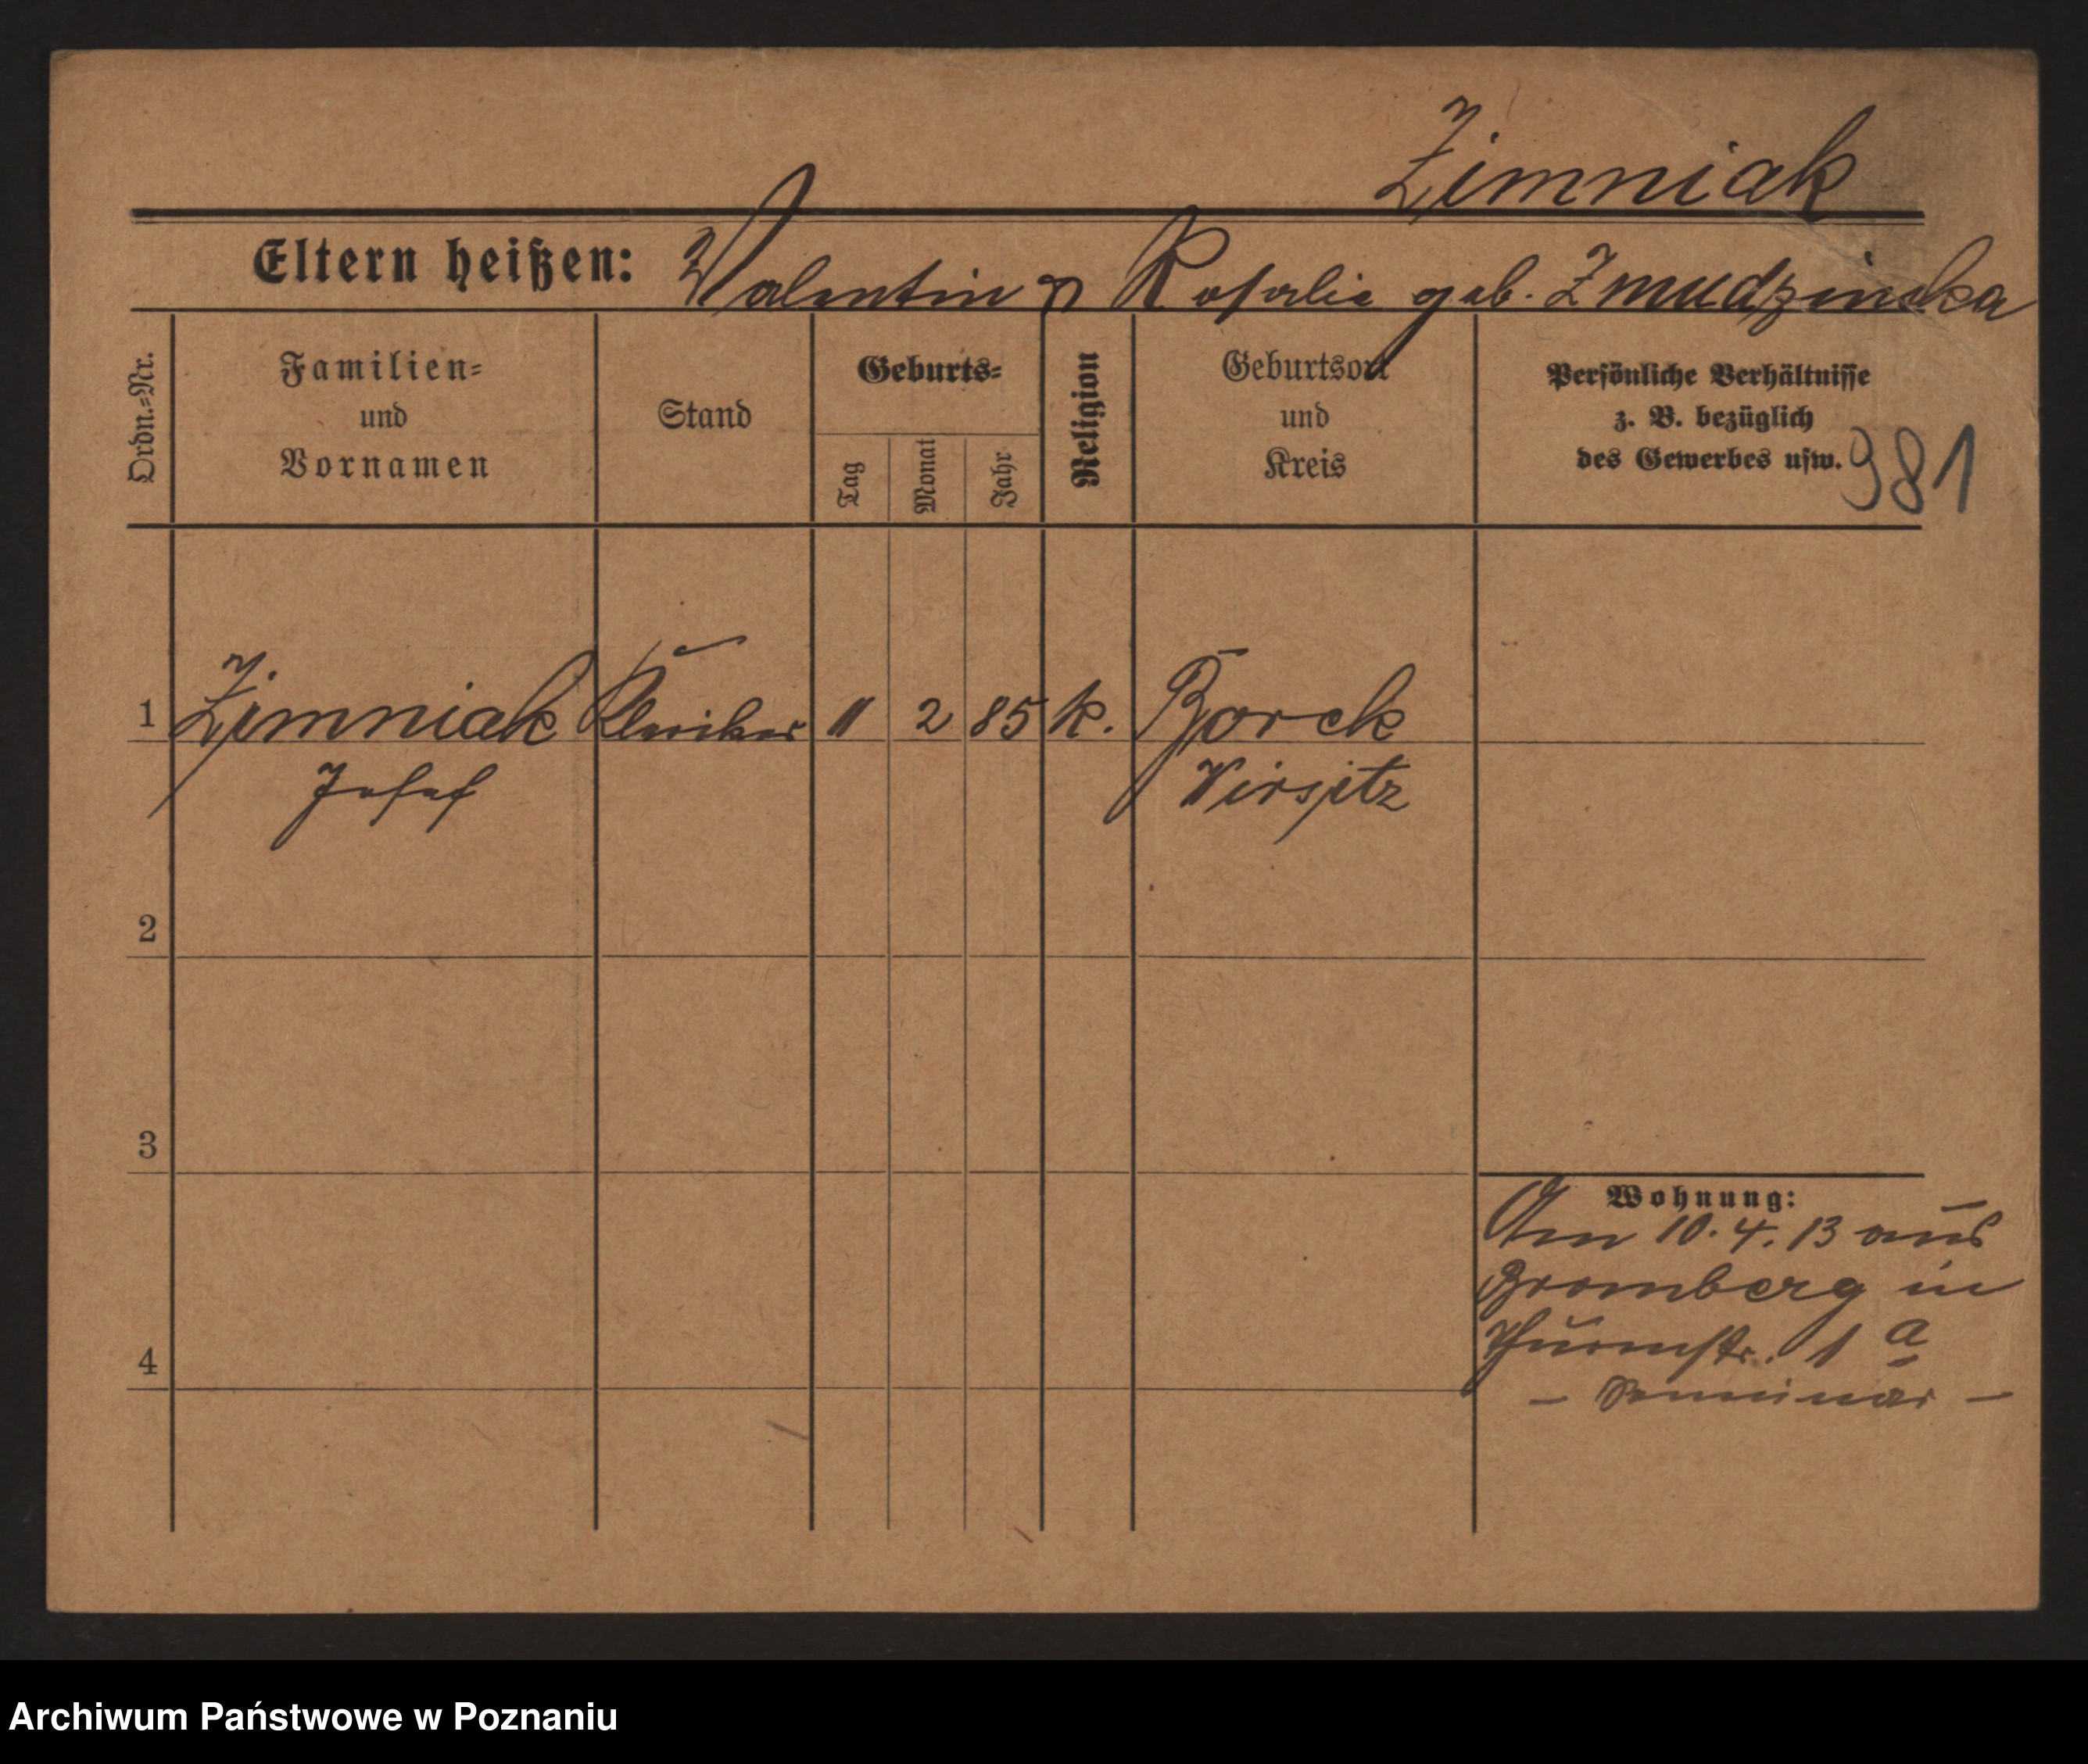 Zimniak
Eltern heißen: Valentin u Rosalie geb. Zmudzinska
Ordn.-Nr.
Familien-
und
Vornamen
Stand
Geburts-
Tag
Monat
Jahr
Religion
Geburtsort
und
Kreis
Persönliche Verhältnisse
z. B. bezüglich
des Gewerbes usw.
981
1 Zimniak Kleriker 11 2 85 k. Borek
Josef Wirsitz
2
3
Wohnung:
Am 10.4.13 aus
Bromberg in
Thurmstr. 1 a
4
- Seminar -
Archiwum Państwowe w Poznaniu